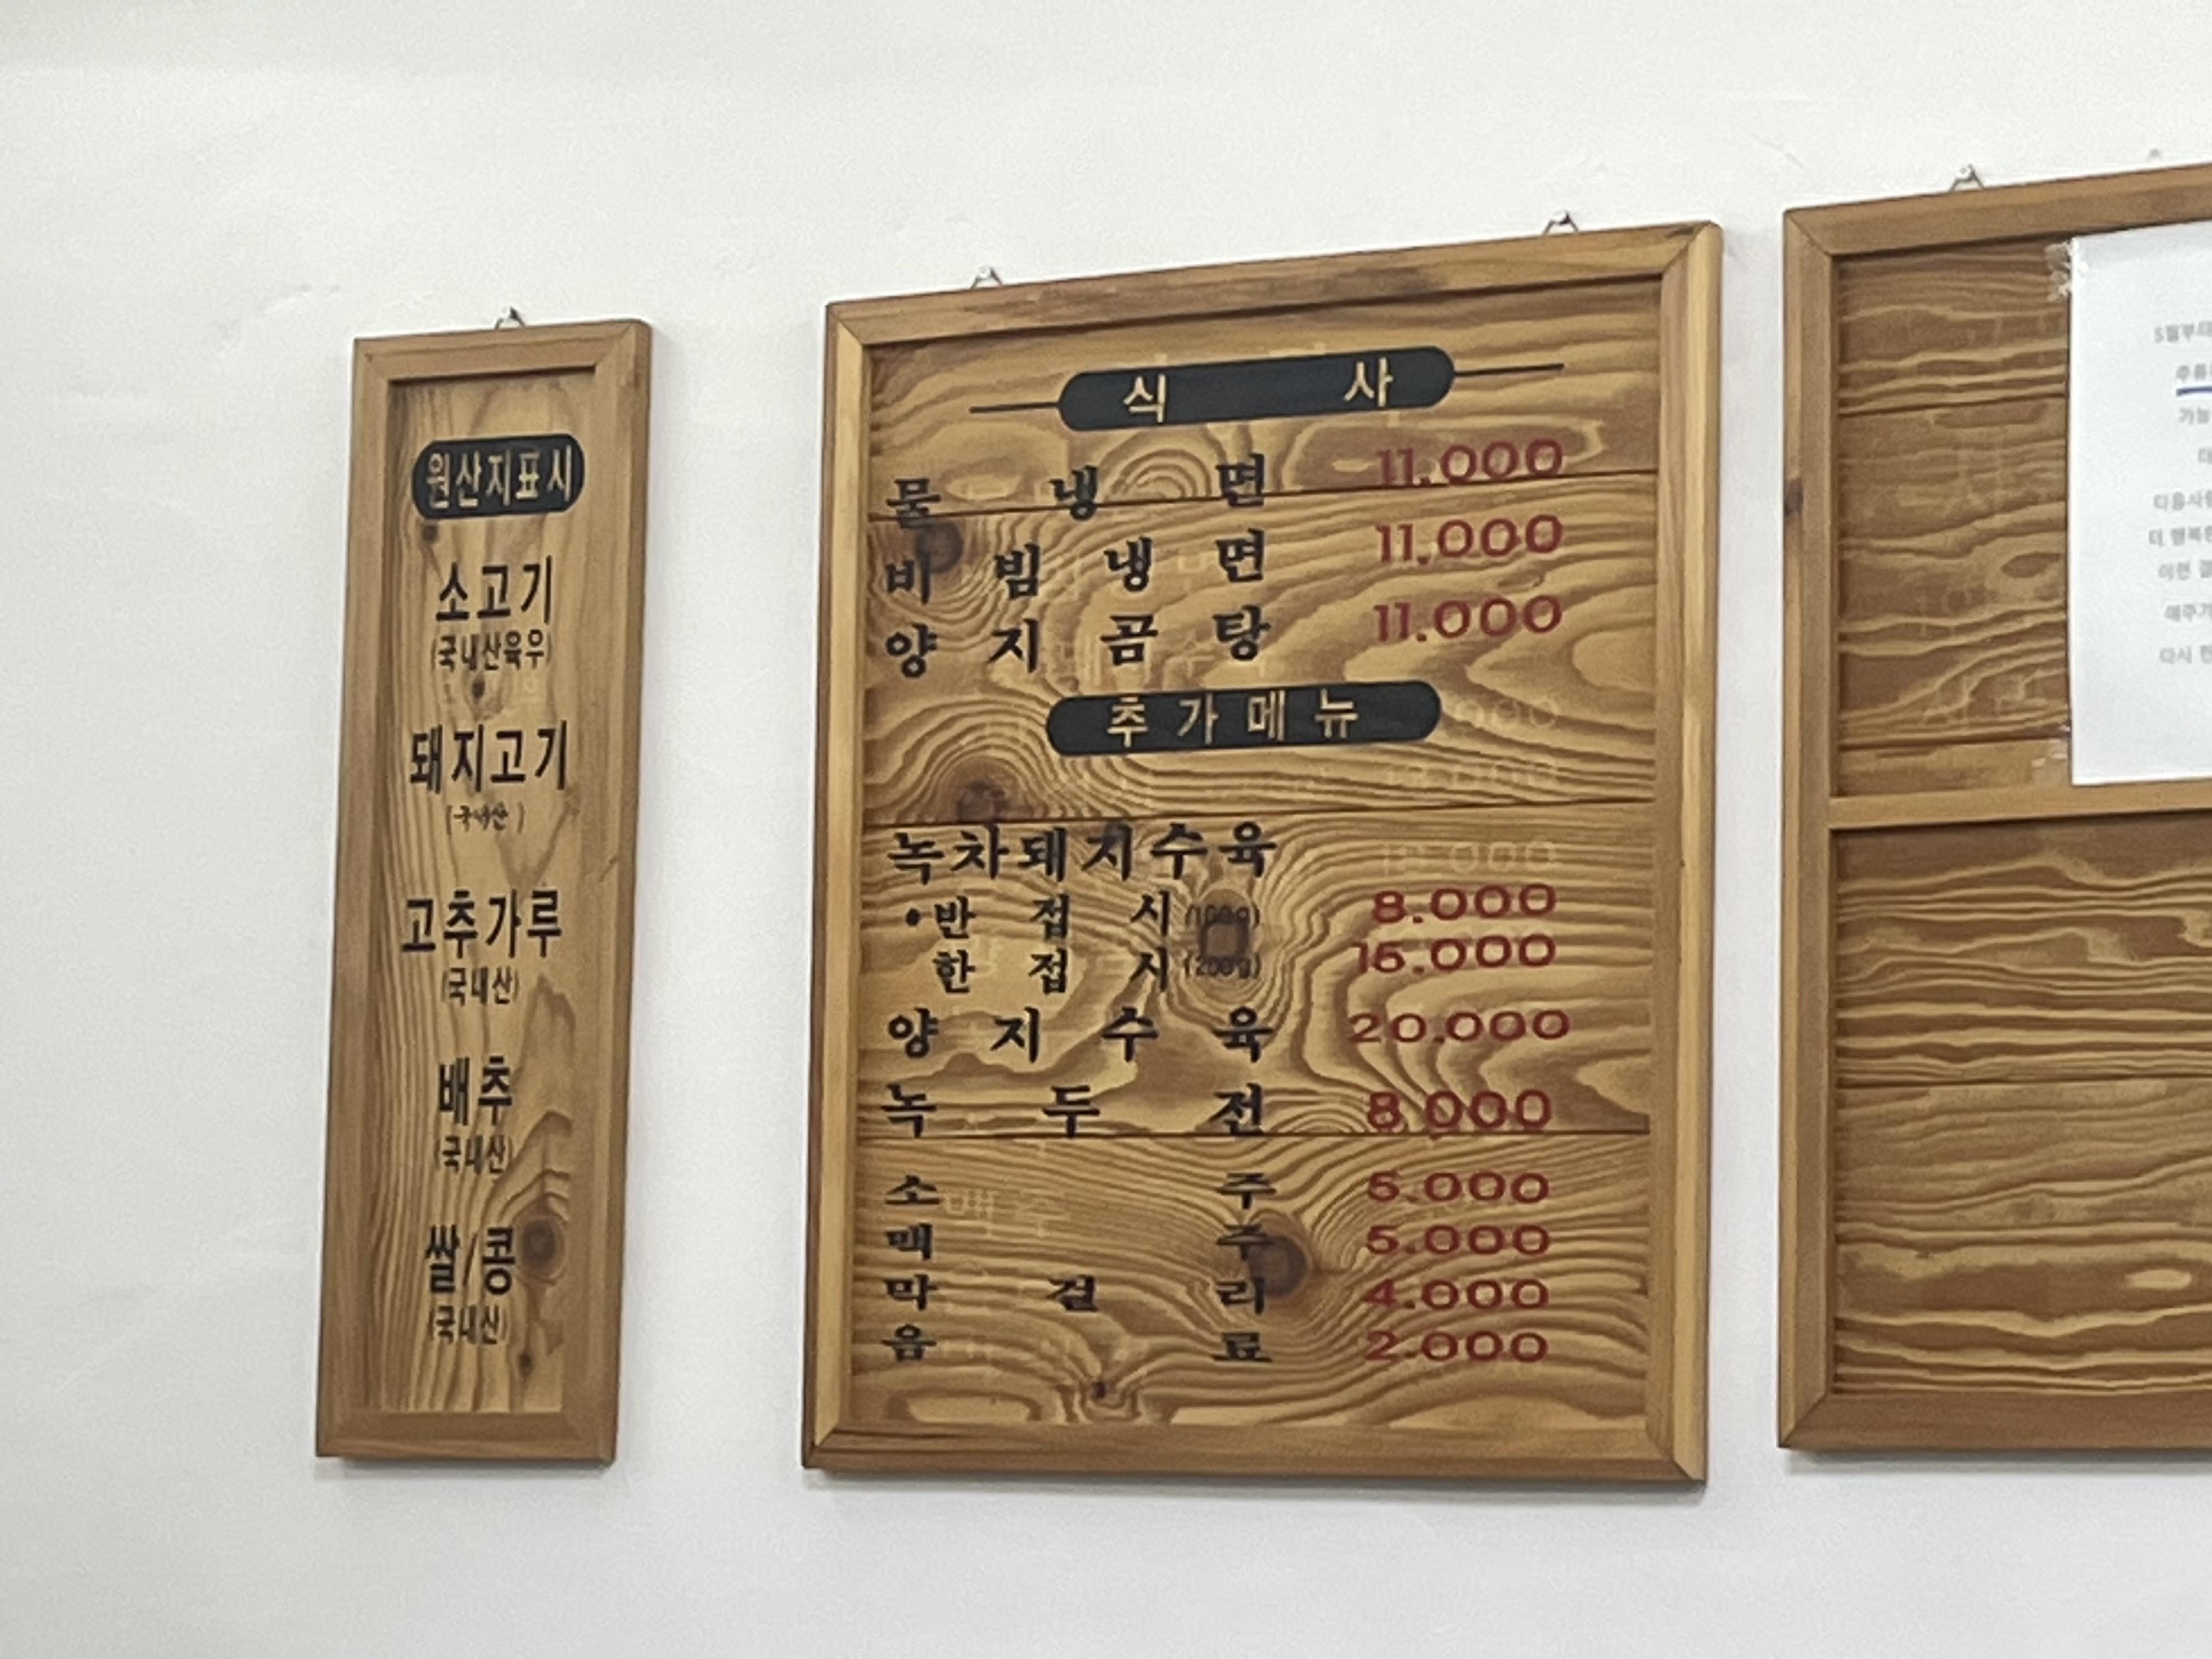 원산지표시
소고기
(국내산육우)
돼지고기
(국내산)
고추가루
(국내산)
배추
(국내산)
쌀/콩
(국내산)
식 사
물 냉 면 11.000
비 빔 냉 면 11.000
양 지 곰 탕 11.000
추 가 메 뉴
녹차돼지수육
•반 접 시 (100g) 8.000
한 접 시 (200g) 15.000
양 지 수 육 20.000
녹 두 전 8.000
소 주 5.000
맥 주 5.000
막 걸 리 4.000
음 료 2.000
5월부터
주류
가능
다시 한